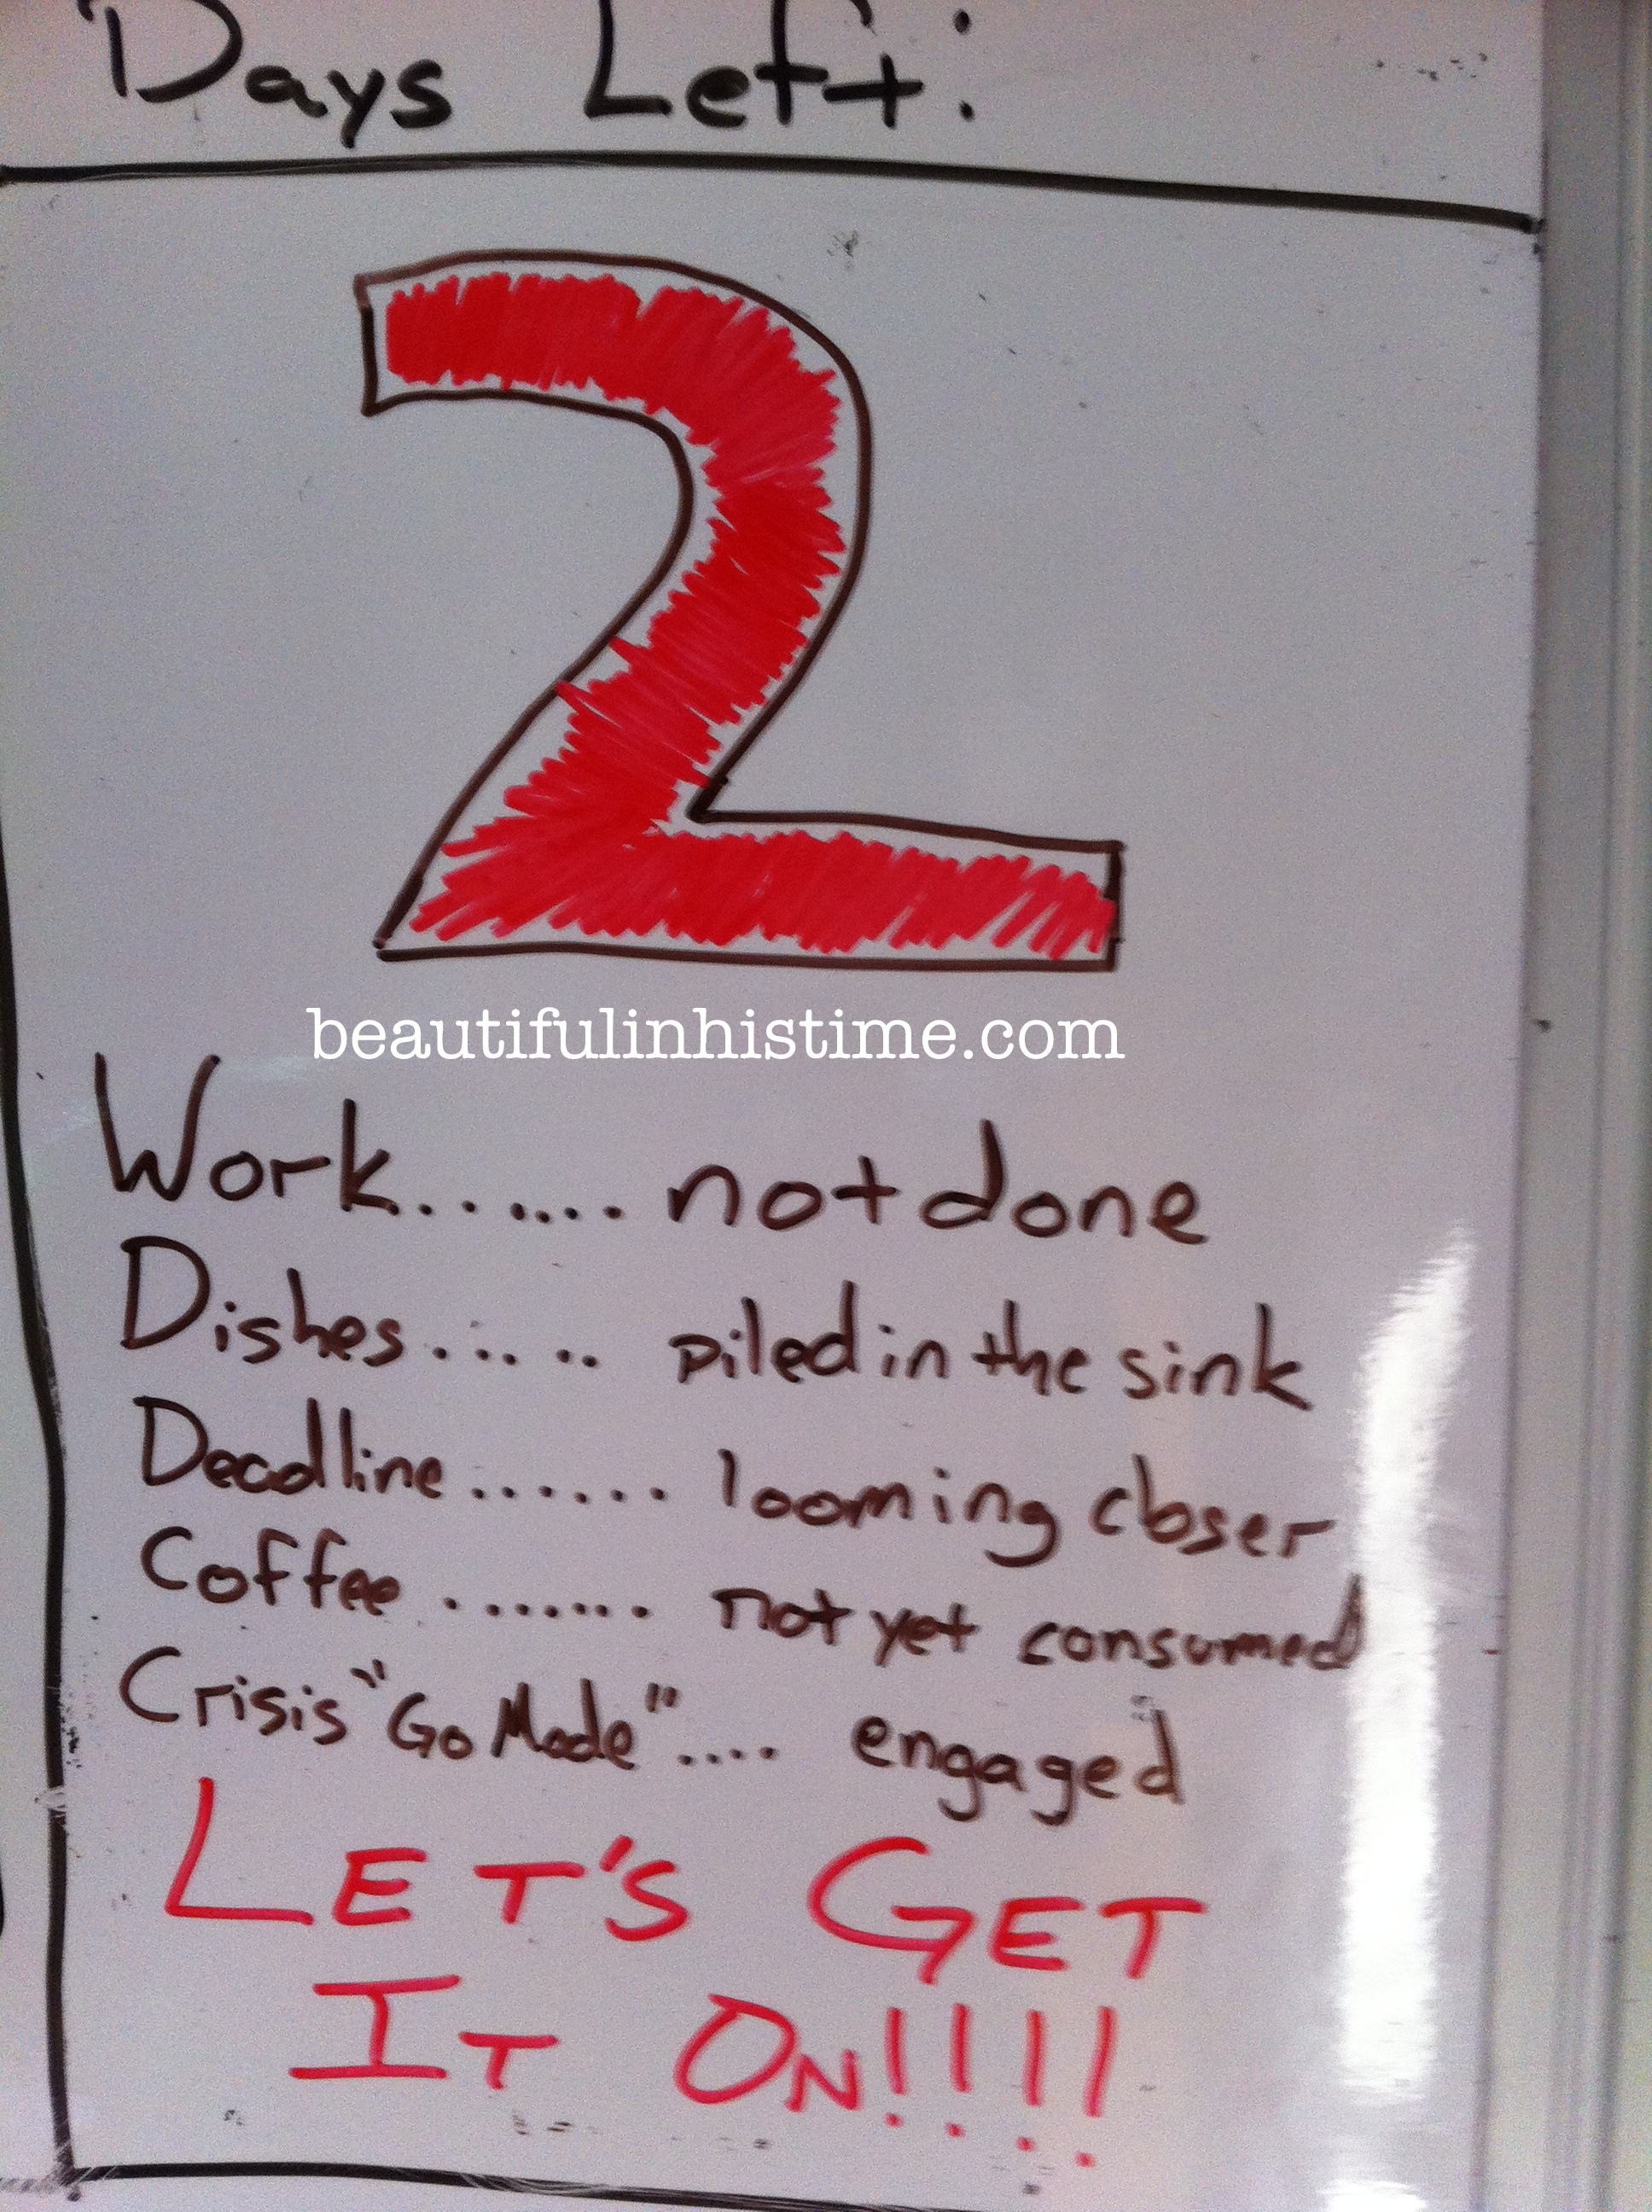 Days Left:
2
beautifulinhistime.com
Work....... not done
Dishes...... piled in the sink
Deadline....... looming closer
Coffee ....... not yet consumed
Crisis "Go Mode".... engaged
LET'S GET
IT ON!!!!